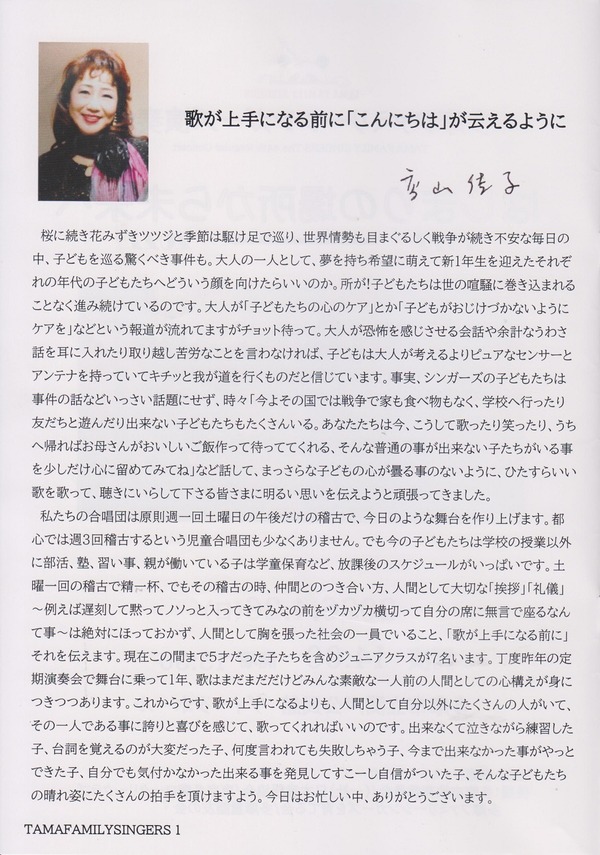 歌が上手になる前に「こんにちは」が云えるように
高山佳子
桜に続き花みずきツツジと季節は駆け足で巡り、世界情勢も目まぐるしく戦争が続き不安な毎日の
中、子どもを巡る驚くべき事件も。大人の一人として、夢を持ち希望に萌えて新1年生を迎えたそれぞ
れの年代の子どもたちへどういう顔を向けたらいいのか。所が!子どもたちは世の喧騒に巻き込まれる
ことなく進み続けているのです。大人が「子どもたちの心のケア」とか「子どもがおじけづかないように
ケアを」などという報道が流れてますがチョット待って。大人が恐怖を感じさせる会話や余計なうわさ
話を耳に入れたり取り越し苦労なことを言わなければ、子どもは大人が考えるよりピュアなセンサーと
アンテナを持っていてキチッと我が道を行くものだと信じています。事実、シンガーズの子どもたちは
事件の話などいっさい話題にせず、時々「今よその国では戦争で家も食べ物もなく、学校へ行ったり
友だちと遊んだり出来ない子どもたちもたくさんいる。あなたたちは今、こうして歌ったり笑ったり、うち
へ帰ればお母さんがおいしいご飯作って待っててくれる、そんな普通の事が出来ない子たちがいる事
を少しだけ心に留めてみてね」など話して、まっさらな子どもの心が曇る事のないように、ひたすらいい
歌を歌って、聴きにいらして下さる皆さまに明るい思いを伝えようと頑張ってきました。
私たちの合唱団は原則週一回土曜日の午後だけの稽古で、今日のような舞台を作り上げます。都
心では週3回稽古するという児童合唱団も少なくありません。でも今の子どもたちは学校の授業以外
に部活、塾、習い事、親が働いている子は学童保育など、放課後のスケジュールがいっぱいです。土
曜一回の稽古で精一杯、でもその稽古の時、仲間とのつき合い方、人間として大切な「挨拶」「礼儀」
～例えば遅刻して黙ってノソっと入ってきてみなの前をヅカヅカ横切って自分の席に無言で座るなん
て事～は絶対にほっておかず、人間として胸を張った社会の一員でいること、「歌が上手になる前に」
それを伝えます。現在この間まで5才だった子たちを含めジュニアクラスが7名います。丁度昨年の定
期演奏会で舞台に乗って1年、歌はまだまだだけどみんな素敵な一人前の人間としての心構えが身に
つきつつあります。これからです、歌が上手になるよりも、人間として自分以外にたくさんの人がいて、
その一人である事に誇りと喜びを感じて、歌ってくれればいいのです。出来なくて泣きながら練習した
子、台詞を覚えるのが大変だった子、何度言われても失敗しちゃう子、今まで出来なかった事がやっと
できた子、自分でも気付かなかった出来る事を発見してすこーし自信がついた子、そんな子どもたち
の晴れ姿にたくさんの拍手を頂けますよう。今日はお忙しい中、ありがとうございます。
TAMAFAMILYSINGERS 1